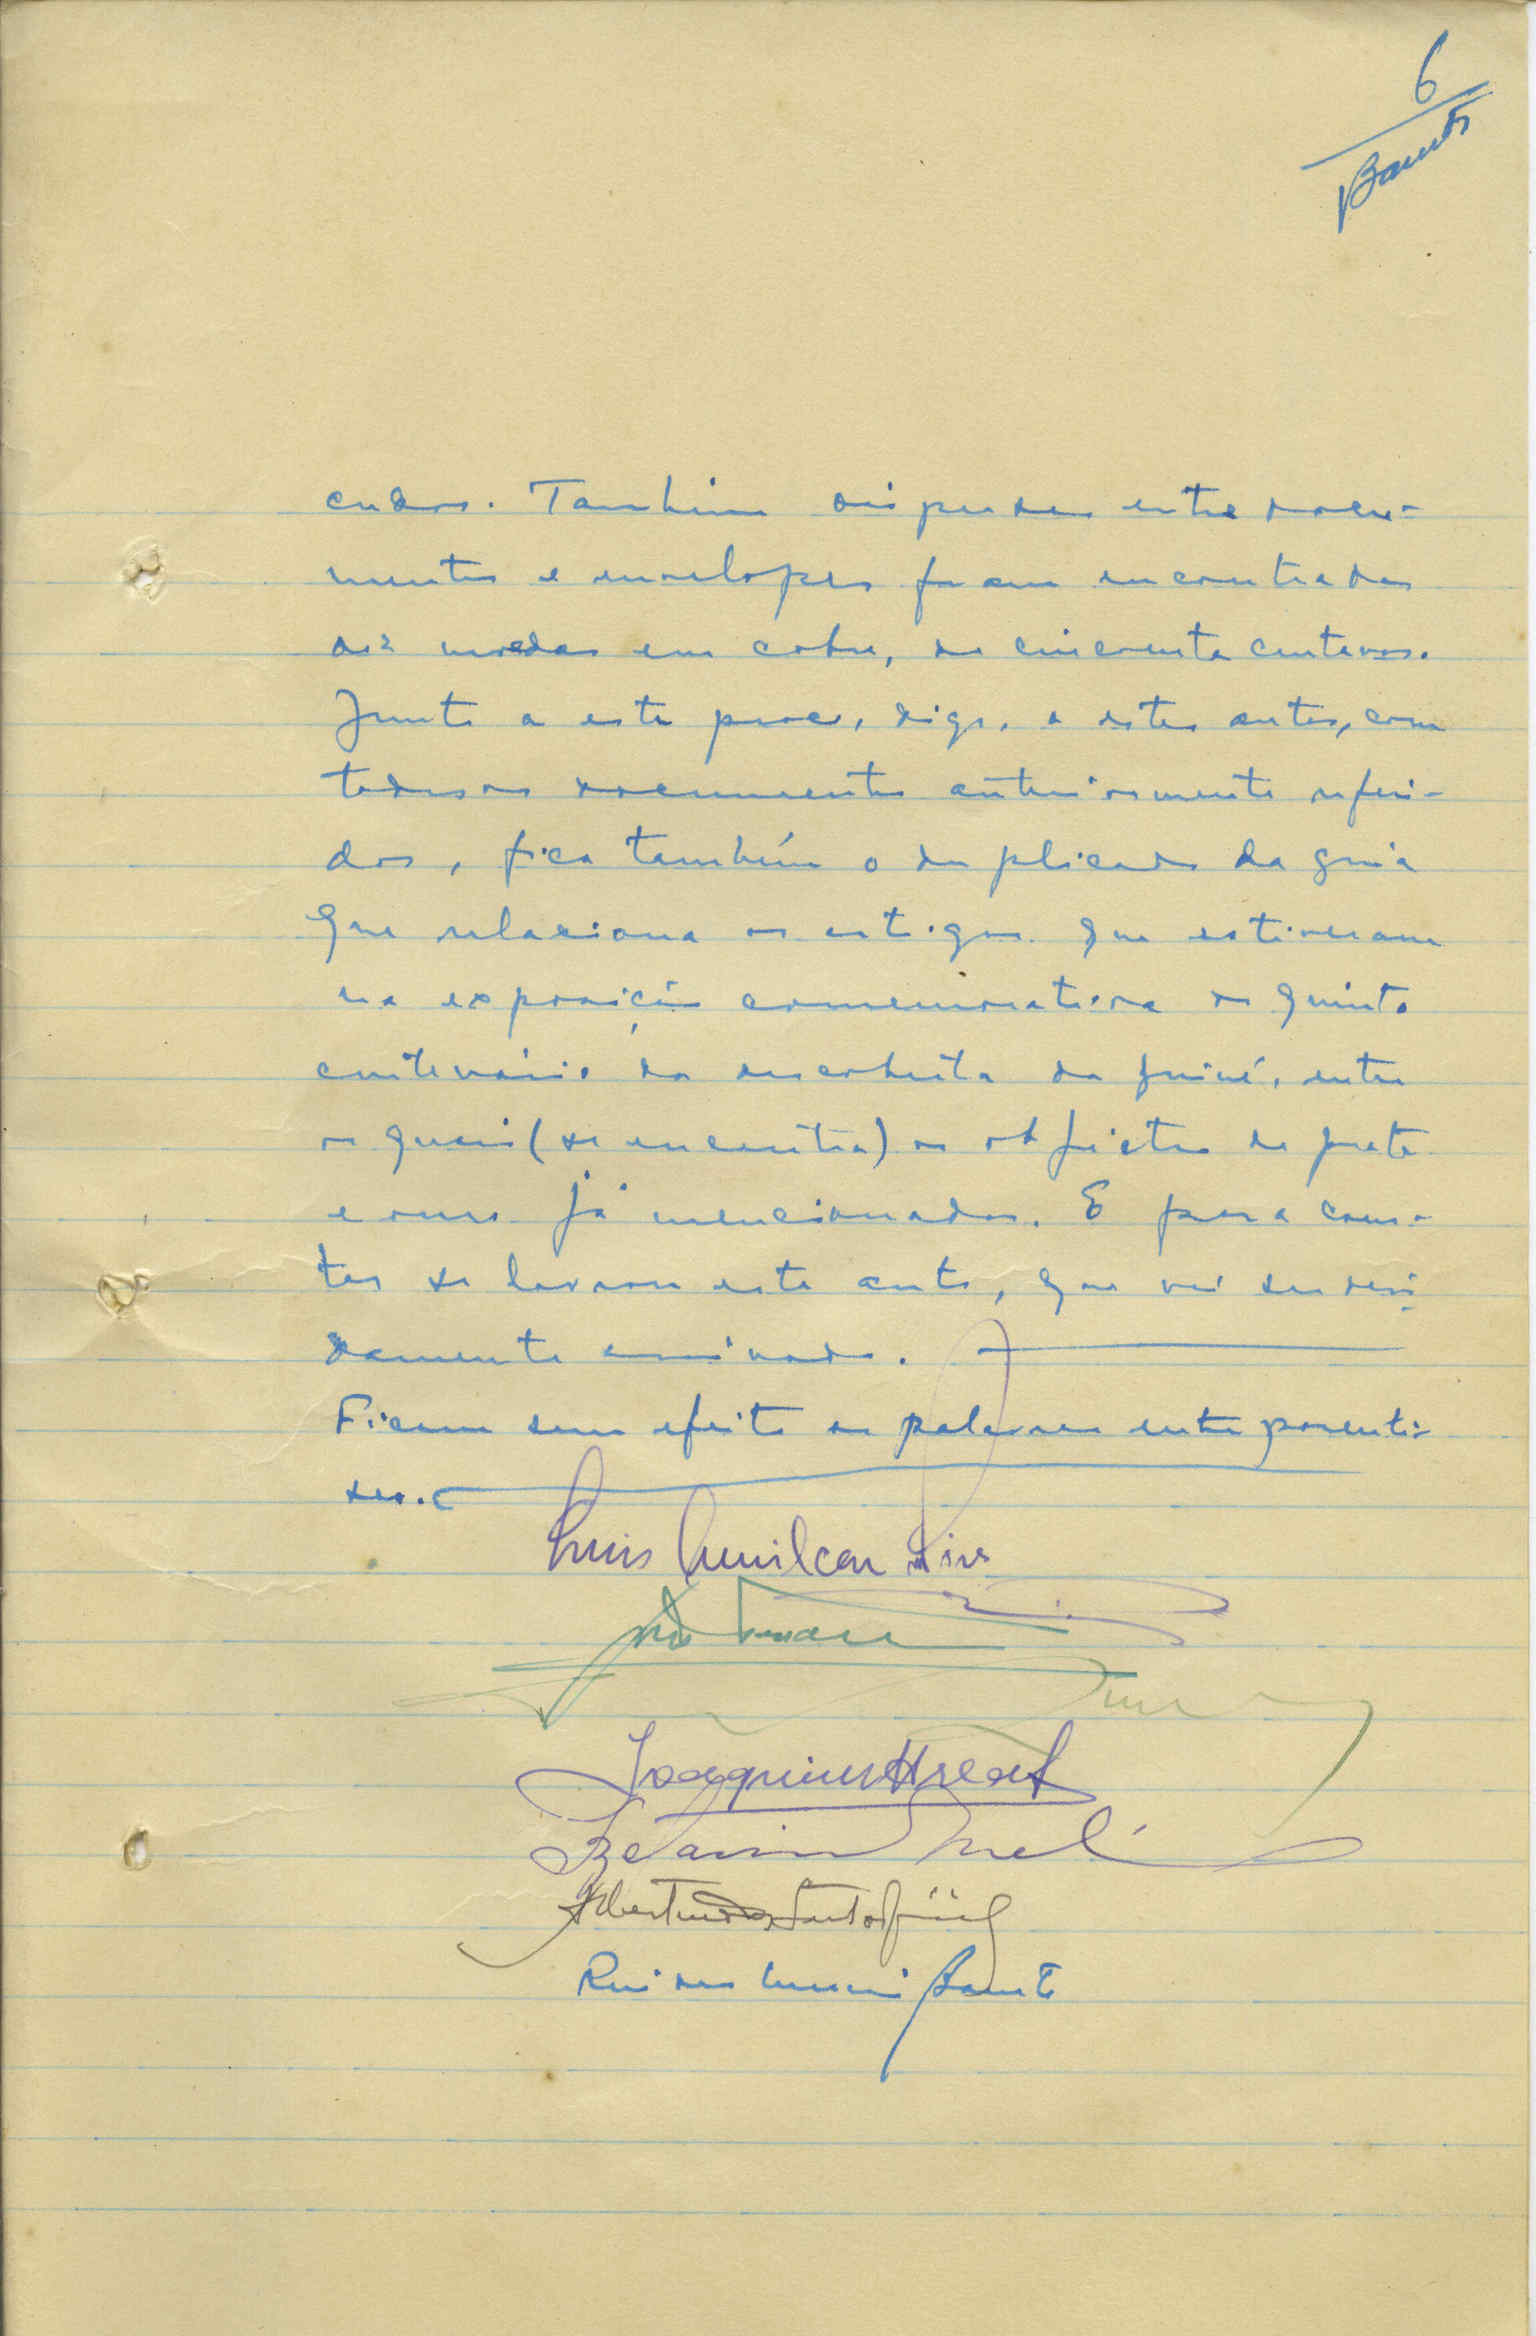 6
cudos. Também dispersas entre docu-
mentos e envelopes foram encontradas
dez moedas em cobre, de cincoenta centavos.
Junto a este proce, digo, a estes autos, com
todos os documentos anteriormente referi-
dos, fica também o duplicado da guia
que relaciona os artigos que estiveram
na exposição comemorativa do quinto
centenário da descoberta da Guiné, entre
os quais (se encontra) os objectos de prata
e ouro já mencionados. E para cons-
tar se lavrou este auto, que vai ser devi
damente assinado.
Ficam sem efeito as palavras entre parente-
ses.
Luis Amilcar
Joaquim
Abertino dos Santos
Rui